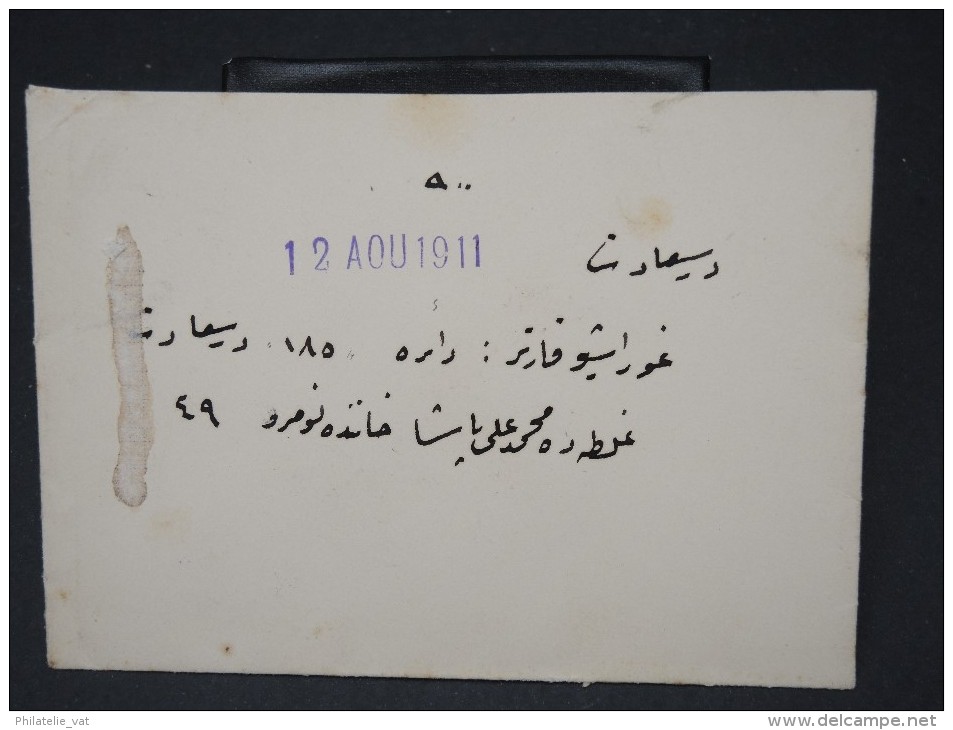 ٥٠٠
12 AOU 1911
درسعادت
غوراشیو فارتر : دائره ١٨٥ درسعادت
غلطه ده محمد علی پاشا خاننده نومرو ٤٩
Philatelie_vat
www.delcampe.net